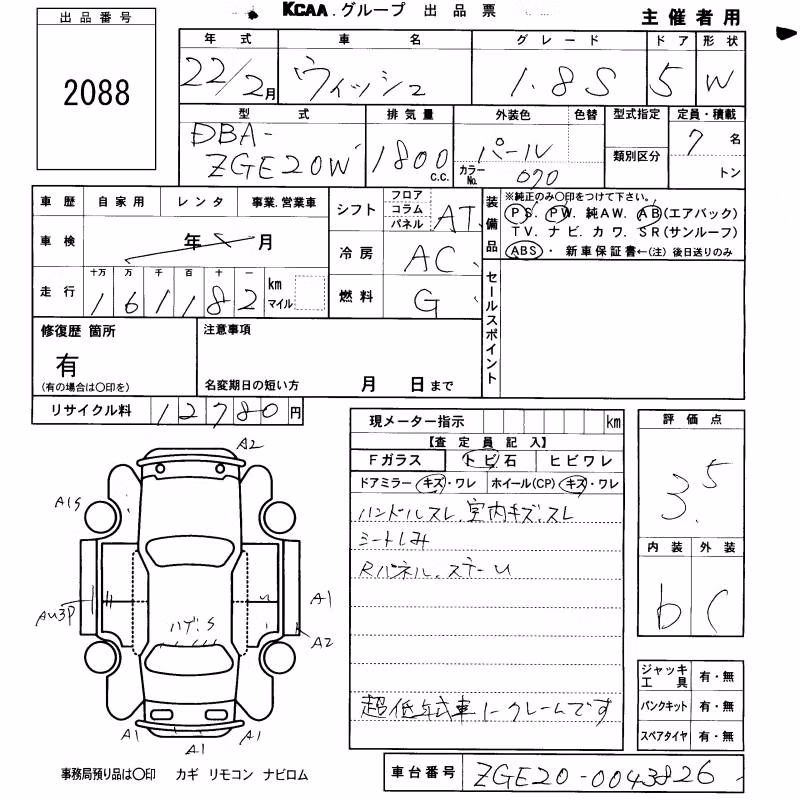 KCAA.グループ 出品票
主催者用
出品番号
2088
年式 車名 グレード ドア 形状
22/2月 ウィッシュ 1.8S 5 W
型式 排気量 外装色 色替 型式指定 定員・積載
DBA-ZGE20W 1800 c.c. パール 7名
カラーNo. 070 類別区分 トン
車歴 自家用 レンタ 事業.営業車
シフト フロア コラム パネル AT
装備品 ※純正のみ〇印をつけて下さい。
PS. PW. 純AW. AB(エアバック)
TV. ナビ. カワ. SR(サンルーフ)
ABS ・ 新車保証書←(注) 後日送りのみ
車検 年 月
冷房 AC
走行 十万 万 千 百 十 一 km マイル
161182
燃料 G
セールスポイント
修復歴 箇所
有
(有の場合は〇印を)
注意事項
名変期日の短い方 月 日まで
リサイクル料 12780円
現メーター指示 km
【査定員記入】
Fガラス トビ石 ヒビワレ
ドアミラー キズ・ワレ ホイール(CP) キズ・ワレ
ハンドルスレ.室内キズ.スレ
シートしみ
Rパネル.ステーU
超低年式車ノークレームです
評価点
3.5
内装 外装
b C
ジャッキ工具 有・無
パンクキット 有・無
スペアタイヤ 有・無
A2
A1S
AU3P
A1
A2
ハゲ.S
A1
A1
A1
事務局預り品は〇印 カギ リモコン ナビロム
車台番号 ZGE20-0043826